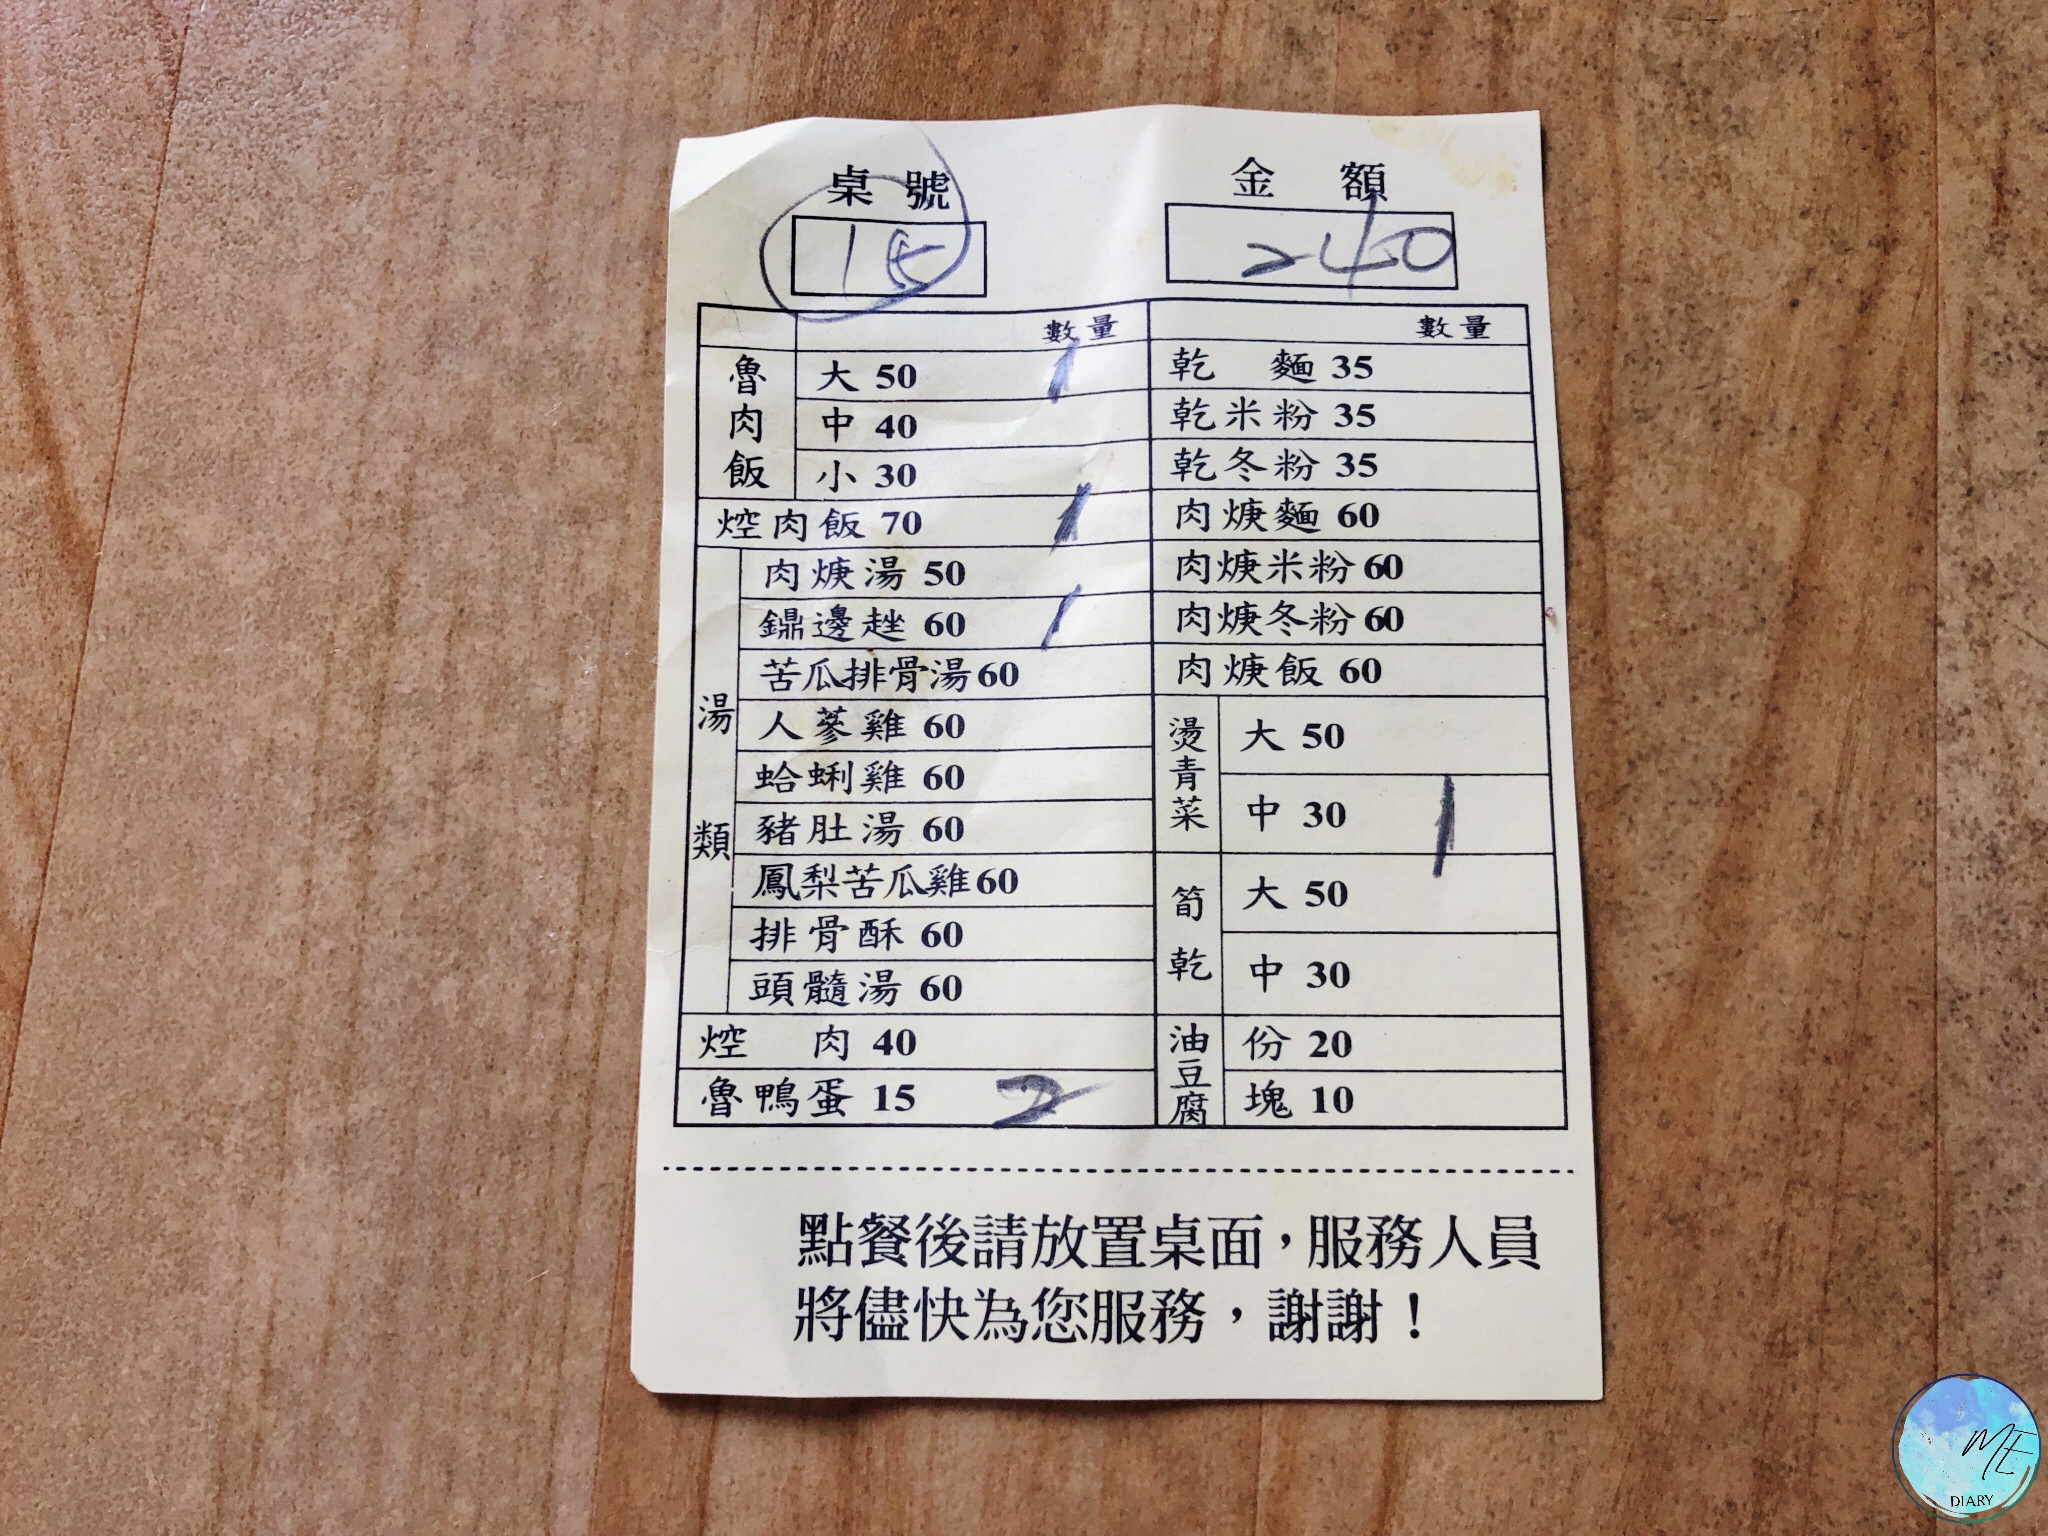 桌號 金額
15 240
數量 數量
魯肉飯
大 50 1
中 40
小 30
焢肉飯 70 1
湯類
肉焿湯 50
鐤邊趖 60 1
苦瓜排骨湯 60
人蔘雞 60
蛤蜊雞 60
豬肚湯 60
鳳梨苦瓜雞 60
排骨酥 60
頭髓湯 60
焢肉 40
魯鴨蛋 15 2
乾麵 35
乾米粉 35
乾冬粉 35
肉焿麵 60
肉焿米粉 60
肉焿冬粉 60
肉焿飯 60
燙青菜
大 50
中 30 1
筍乾
大 50
中 30
油豆腐
份 20
塊 10
點餐後請放置桌面，服務人員
將儘快為您服務，謝謝！
ME
DIARY